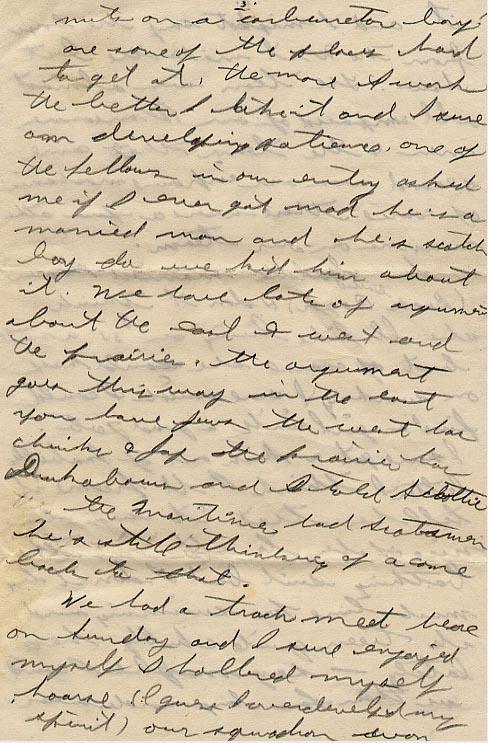 3
nuts on a carburetor boy!
are some of the places hard
to get at, the more I work
the better I like it and I sure
am developing patience, one of
the fellows in our entry asked
me if I ever get mad he's a
married man and he's scotch
boy do we kid him about
it. We have lots of argument
about the east & west and
the prairies, the argument
goes this way in the east
you have jews the west has
chinks & japs the prairies has
Dukabours and I told Scottie
the Maritimes had scotsmen
he's still thinking of a come
back to that.
We had a track meet here
on Sunday and I sure enjoyed
myself I hollered myself
hoarse (I guess I overdeveloped my
spirit) our squadron won